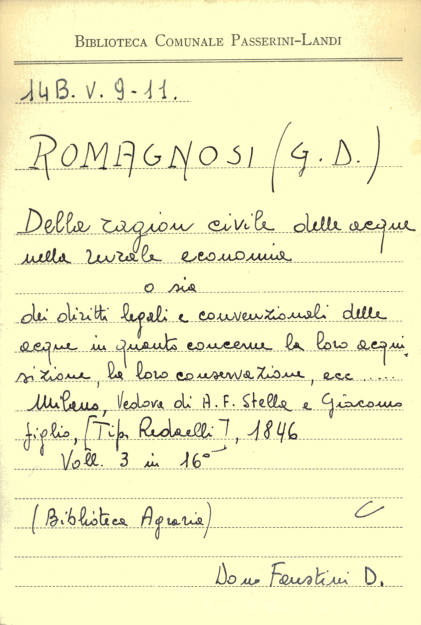 BIBLIOTECA COMUNALE PASSERINI-LANDI
14B. V. 9-11.
ROMAGNOSI (G. D.)
Della ragion civile delle acque
nella rurale economia
o sia
dei diritti legali e convenzionali delle
acque in quanto concerne la loro acqui
sizione, la loro conservazione, ecc .....
Milano, Vedova di A. F. Stella e Giacomo
figlio, [Tip. Redaelli], 1846
Voll. 3 in 16°
(Biblioteca Agraria)
C
Dono Faustini D.